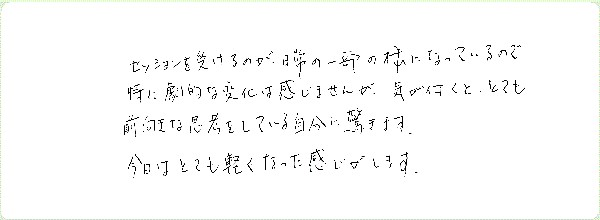 セッションを受けるのが、日常の一部の様になっているので
特に劇的な変化は感じませんが、気が付くと、とても
前向きな思考をしている自分に驚きます。
今日はとても軽くなった感じがします。